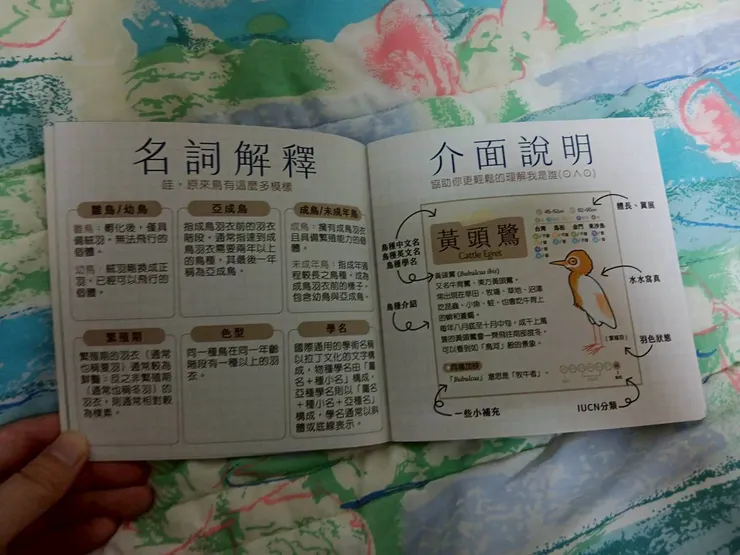 名詞解釋
哇，原來鳥有這麼多模樣
雛鳥/幼鳥
雛鳥：孵化後，僅具
備絨羽，無法飛行的
個體。
幼鳥：絨羽
成正
羽，已經可以飛行的
個體。
亞成鳥
指成鳥羽衣前的羽衣
階段，通常指達到成
鳥羽衣需要兩年以上
的鳥種，其最後一年
稱為亞成鳥。
成鳥/未成年鳥
成鳥：擁有成鳥羽衣
且具備繁殖能力的個
體。
未成年鳥：指成年過
程較長之鳥種，成為
成鳥羽衣前的樣子，
包含幼鳥與亞成鳥。
繁殖期
繁殖期的羽衣（通常
也稱夏羽）通常較為
鮮豔；反之非繁殖期
（通常也稱冬羽）的
羽衣，則通常相對較
為樸素。
色型
同一種鳥在同一年齡
階段有一種以上的羽
衣。
學名
國際通用的學術名稱
以拉丁文化的文字構
成，物種學名由「屬
名＋種小名」構成，
亞種學名則以「屬名
＋種小名＋亞種名」
構成，學名通常以斜
體或底線表示。
介面說明
協助你更輕鬆的理解我是誰(⊙∧⊙)
鳥種中文名
鳥種英文名
鳥種學名
體長、翼展
台灣 馬祖 金門 東沙島
黃頭鷺
Cattle Egret
黃頭鷺 (Bubulcus ibis)
又名牛背鷺、東方黃頭鷺。
常出現在旱田、牧場、草地、沼澤
吃昆蟲、小魚、蛙，也會吃牛背上
的蜱和蒼蠅。
每年八月底至十月中旬，成千上萬
隻的黃頭鷺會一齊飛往南部過冬，
可以看到如「鳥河」般的景象。
鳥種介紹
水水寫真
（繁殖羽）
羽色狀態
「Bubulcus」意思是「牧牛者」。
一些小補充
IUCN分類